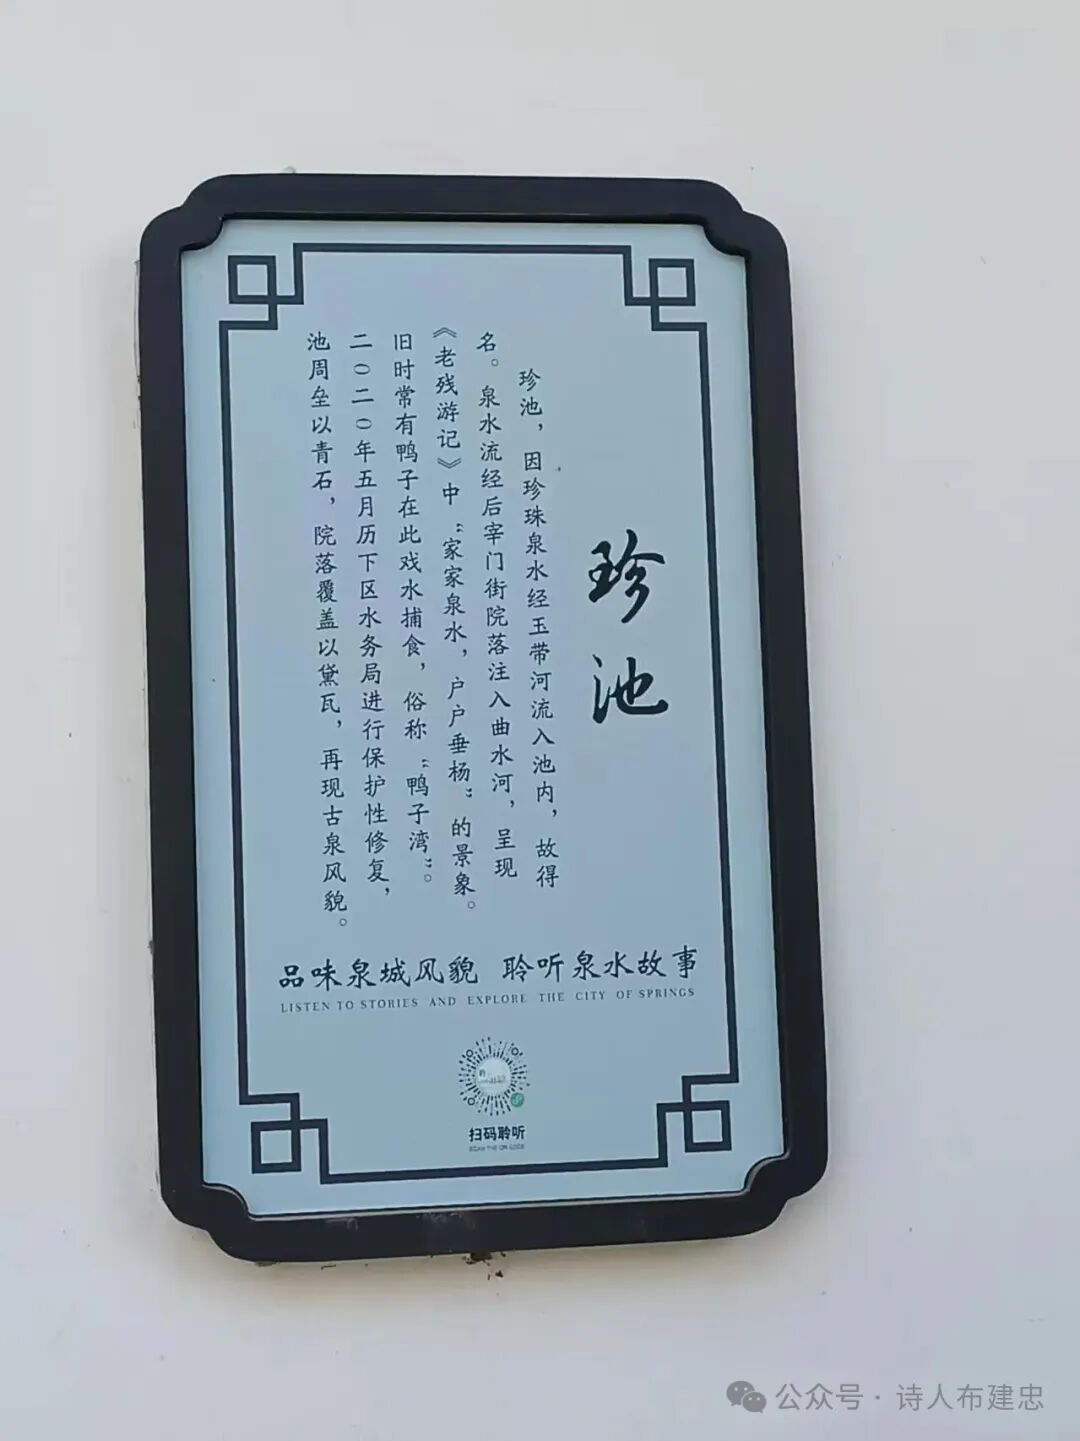 珍池
珍池，因珍珠泉水经玉带河流入池内，故得
名。泉水流经后宰门街院落注入曲水河，呈现
《老残游记》中“家家泉水，户户垂杨”的景象。
旧时常有鸭子在此戏水捕食，俗称“鸭子湾”。
二〇二〇年五月历下区水务局进行保护性修复，
池周垒以青石，院落覆盖以黛瓦，再现古泉风貌。
品味泉城风貌 聆听泉水故事
LISTEN TO STORIES AND EXPLORE THE CITY OF SPRINGS
扫码聆听
SCAN THE QR CODE
公众号·诗人布建忠